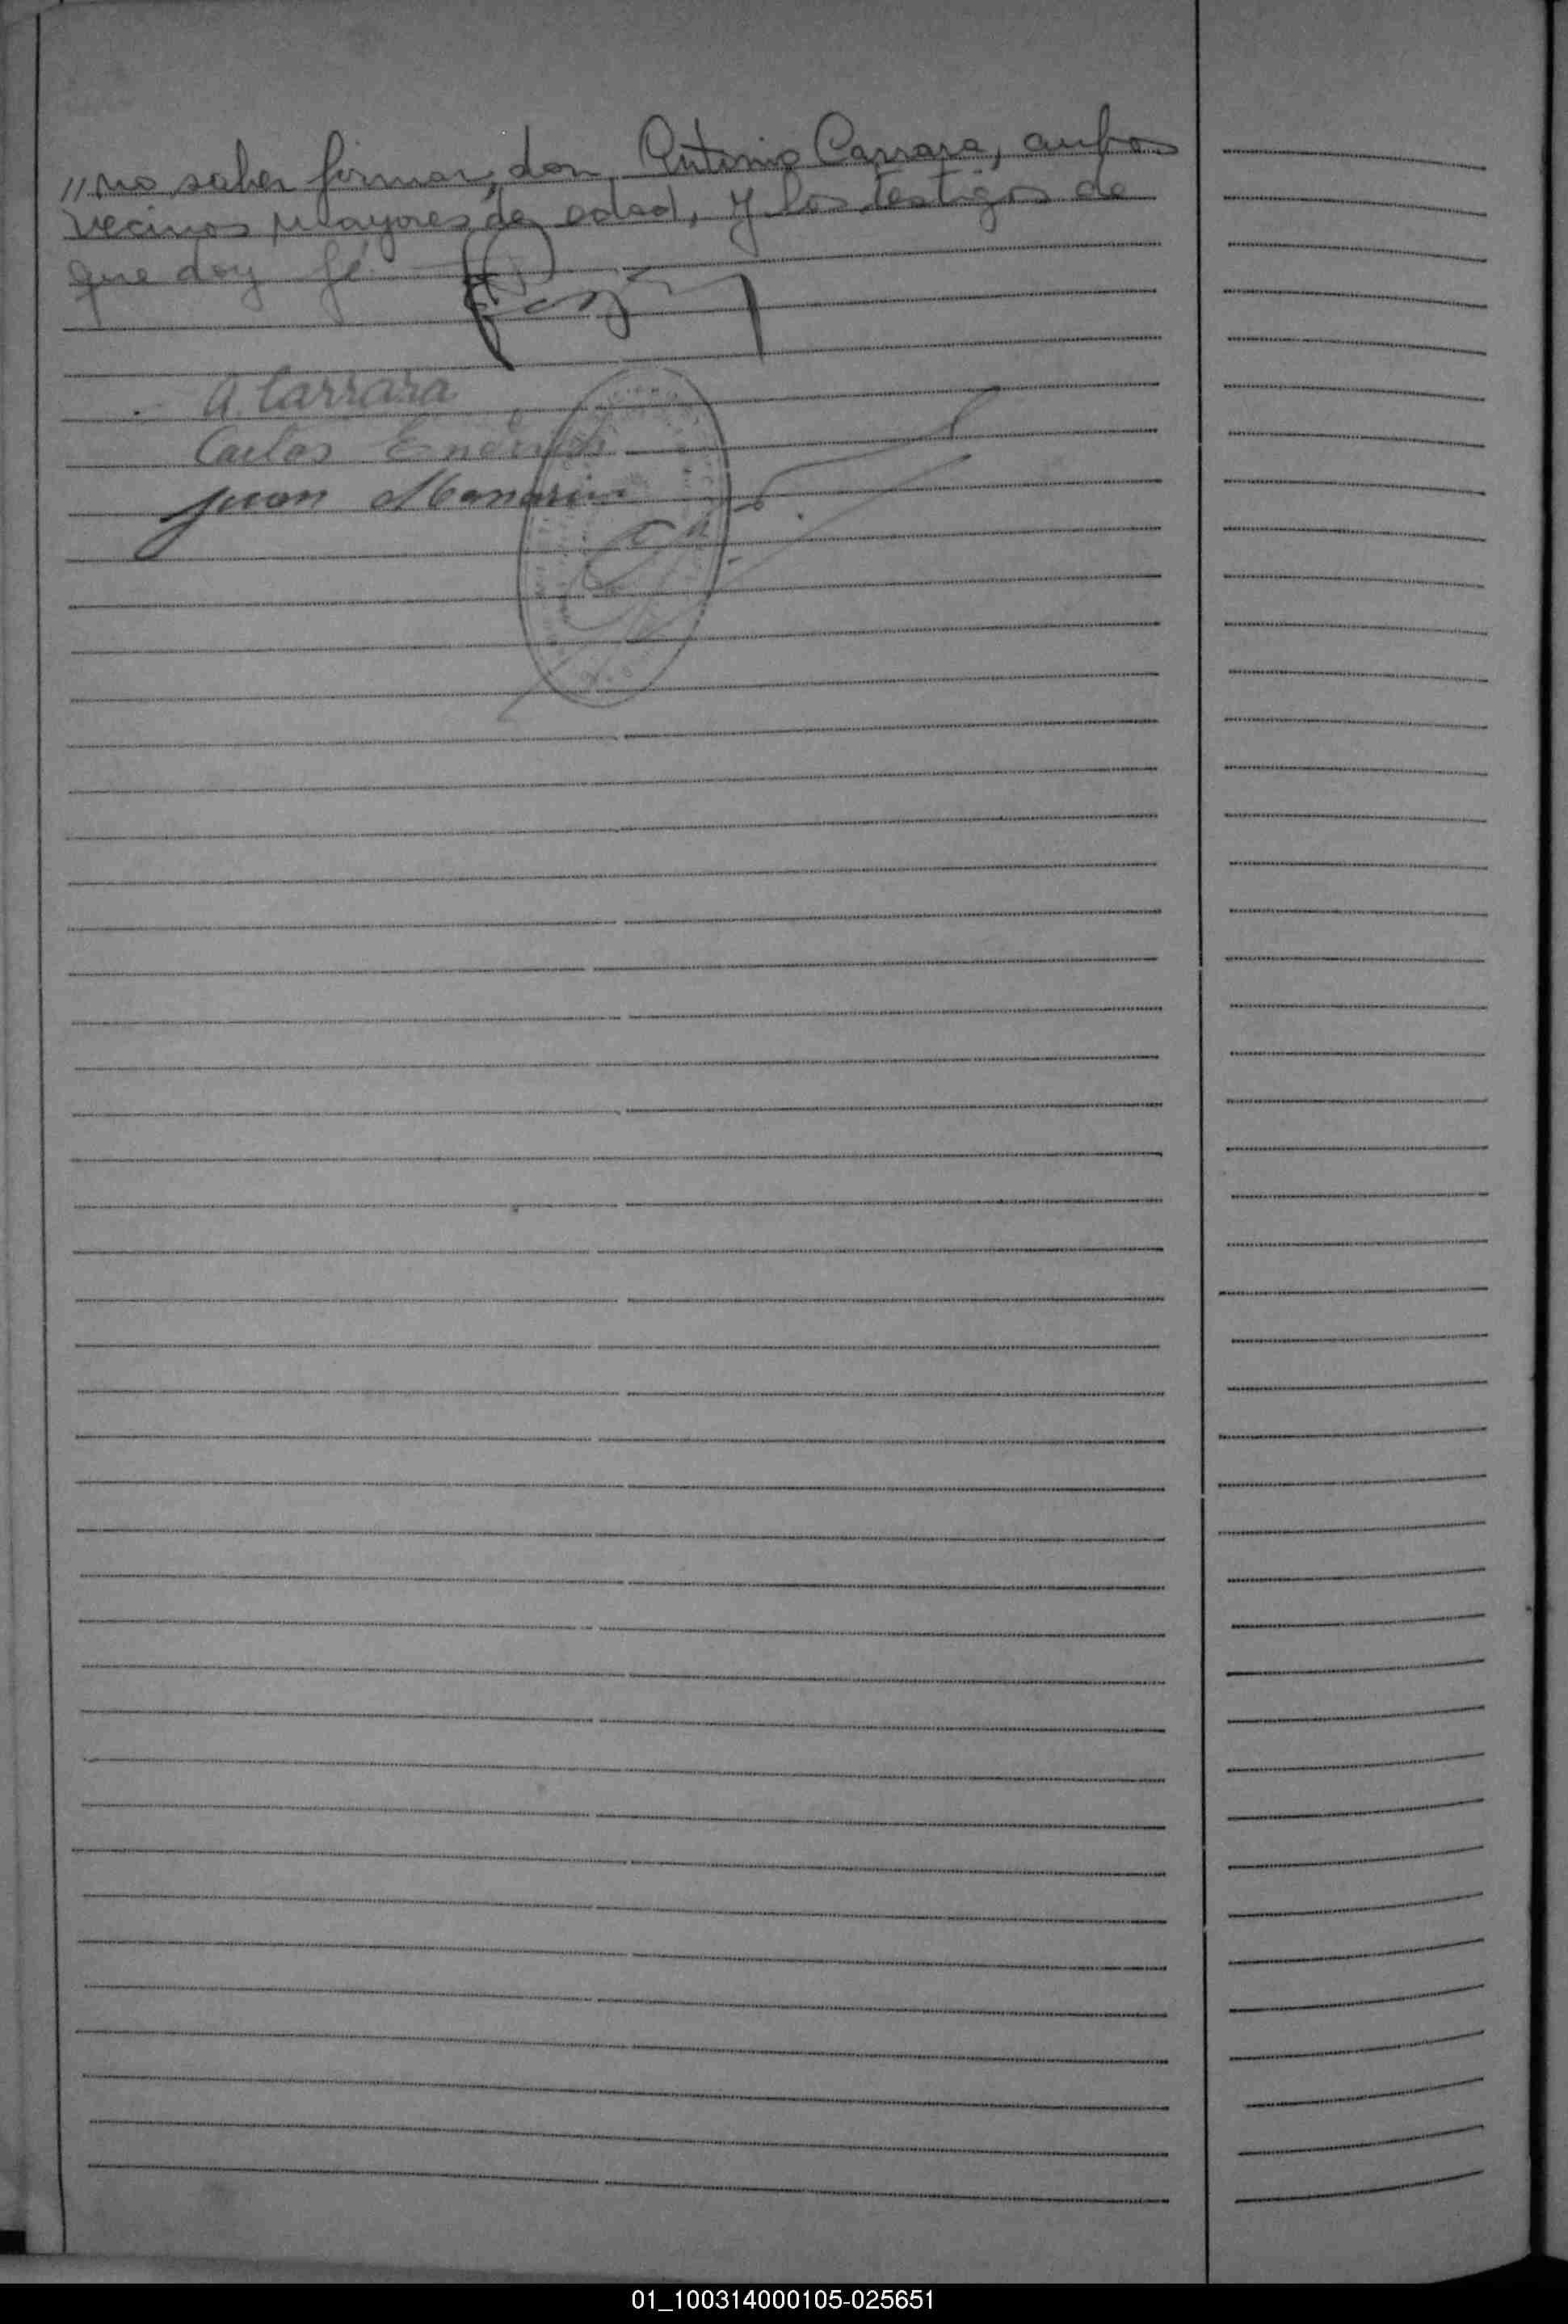 "no saber firmar, don Antonio Carrara, ambos
vecinos mayores de edad, y los testigos de
que doy fé
A. Carrara
Carlos
Juan
01_100314000105-025651